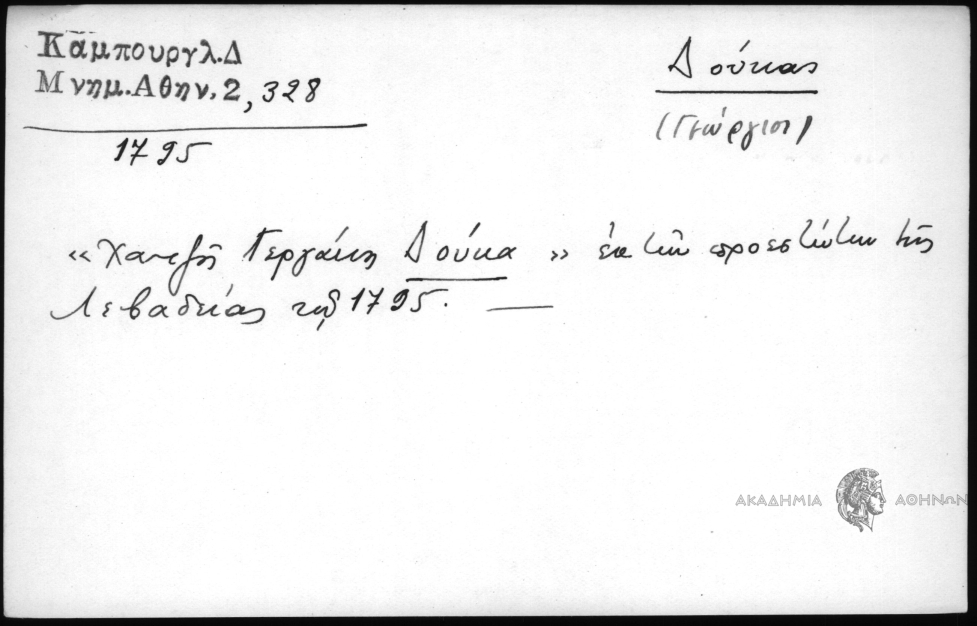 Καμπουργλ.Δ
Μνημ.Αθην.2, 328
1795
Δούκας
(Γεώργιος)
« Χατζῆ Γεργάκη Δούκα » ἐκ τῶν προεστώτων τῆς
Λεβαδείας τῷ 1795. —
ΑΚΑΔΗΜΙΑ ΑΘΗΝΩΝ